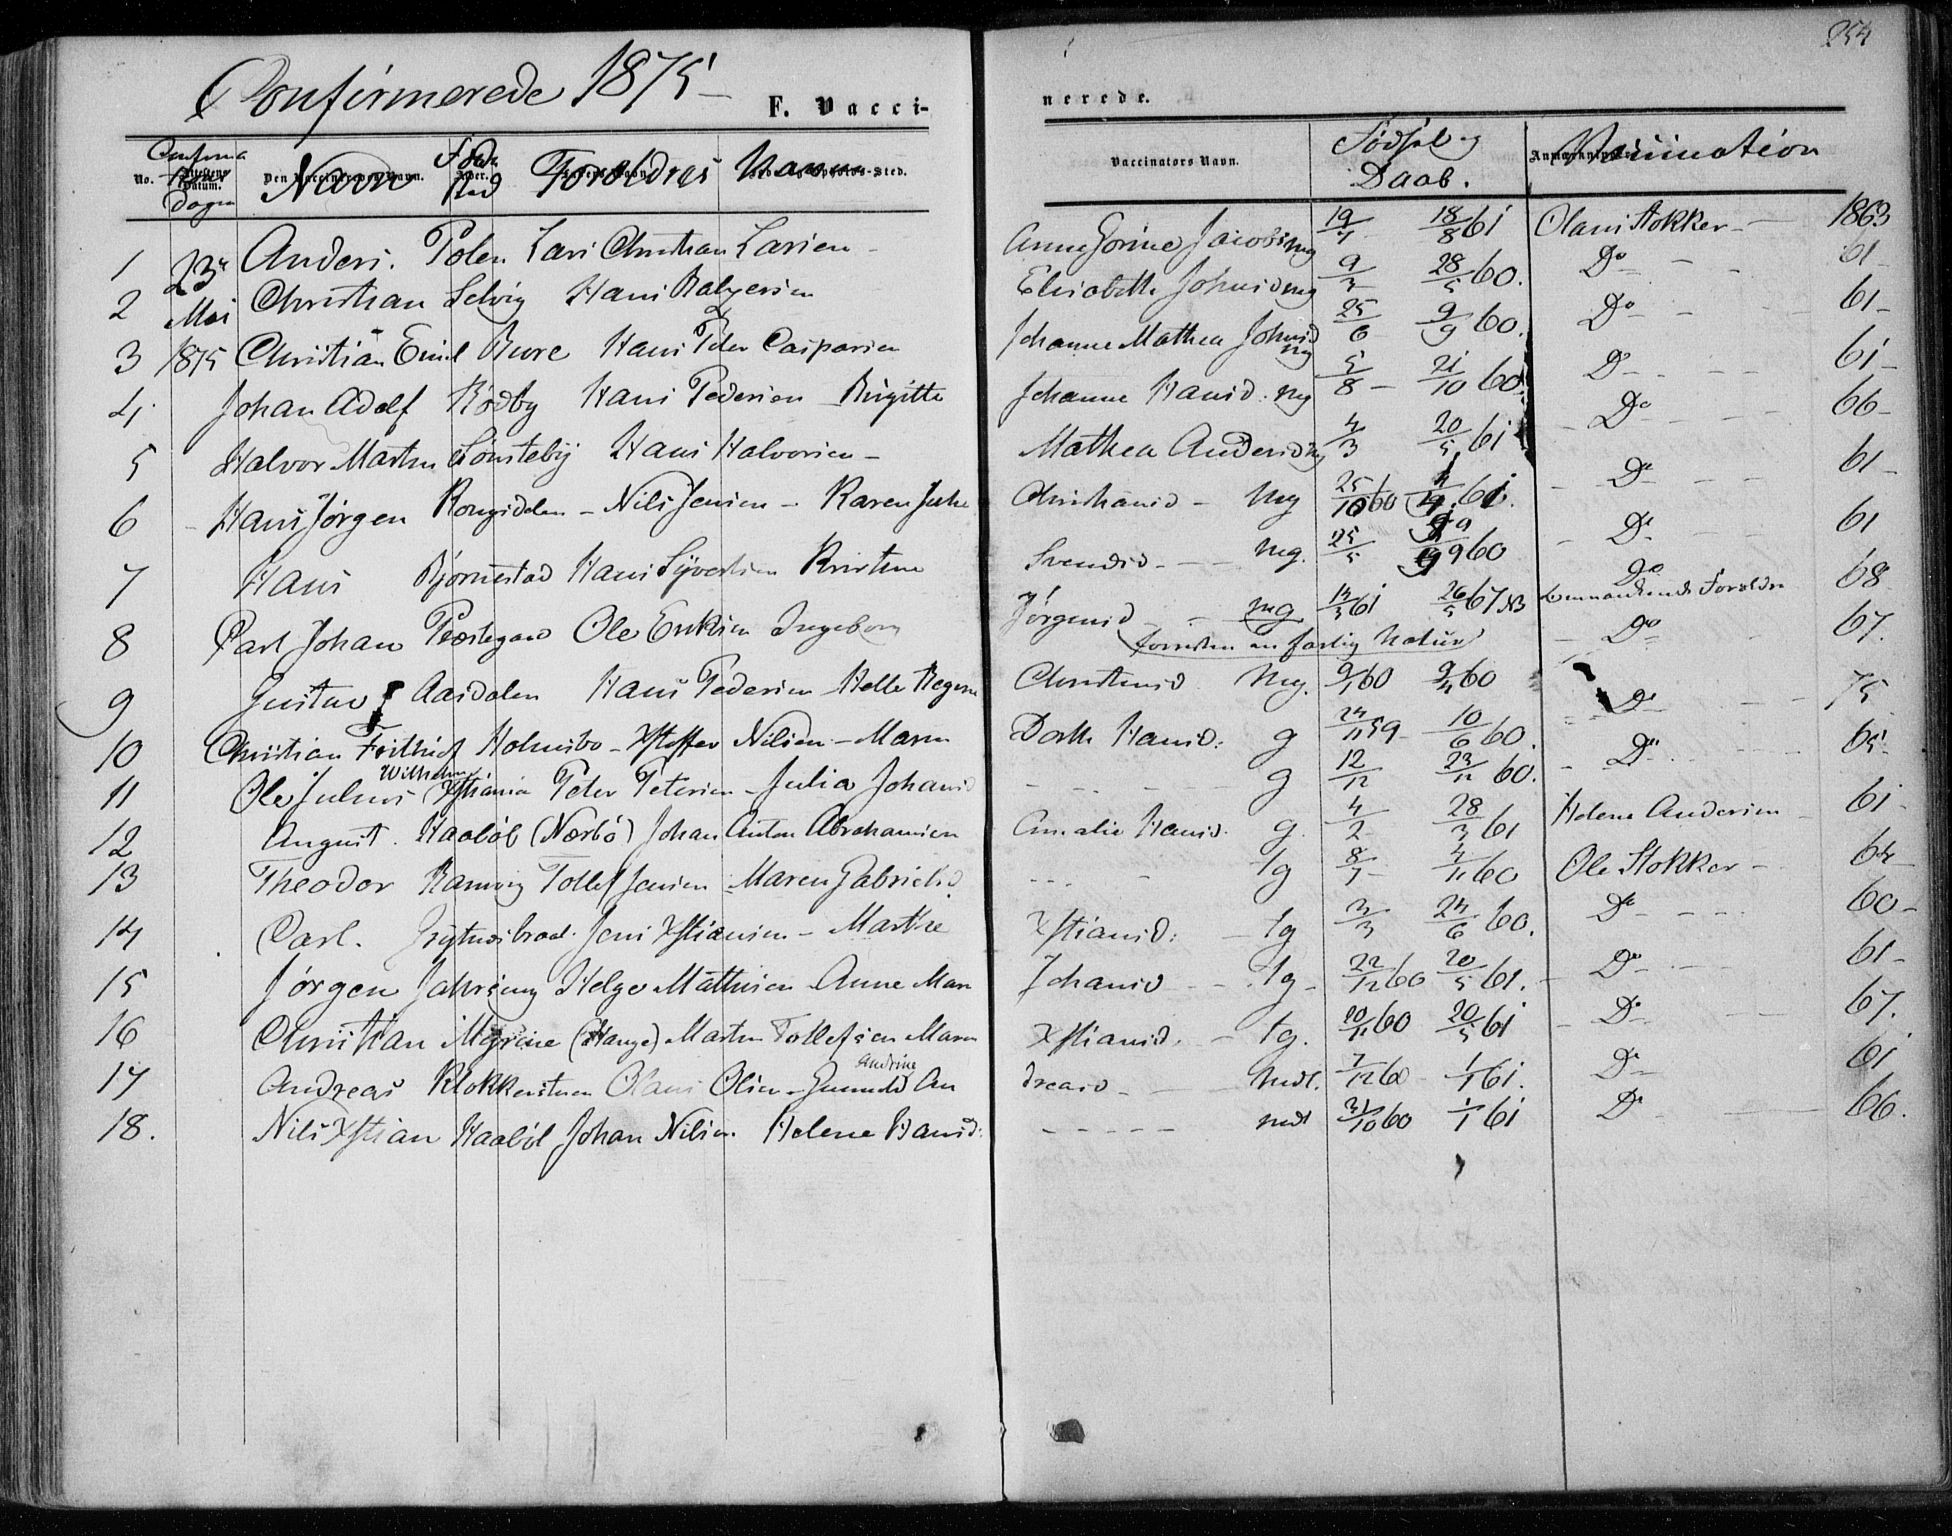 254
Confirmerede 1875
F. Vacci-
nerede.
No. Confirma tions Dagen Navn Føde sted Forældres Navn
Vaccinators Navn. Fødsel og Daab. Vaccination
1 23de Anders. Polen Lars Christian Larsen - Anne Gorine Jacobsd mg 19/7 18/8 61 Olaus Stokker - 1863
2 Mai Christian Selvig Hans Balzersen Elisabeth Johnsd mg 9/3 28/5 60. Do - 61-
3 1875 Christian Emil Bure Hans Peter Caspersen Johanne Mathea Johnsd mg 25/6 9/9 60. Do - 61-
4 Johan Adolf Rødby Hans Pedersen Birgitte Johanne Hansd. mg 5/8 - 21/10 60. Do - 61-
5 Halvor Martin Sønsteby Hans Halvorsen - Mathea Andersd mg 4/3 20/5 61 Do - 66-
6 Hans Jørgen Kongsdelen - Nils Jensen - Karen Julie Christiansd - mg 25/10 60 61. Do 61-
7 Hans Bjørnestad Hans Syvertsen Kristine Svendsd - mg. 25/5 9/9 60 Do 61
8 Carl Johan Præstegaard Ole Eriksen Ingeborg Jørgensd - mg 14/3 61 26/5 67 NB Do 68
forresten en farlig Natur
9 Gustav Aasdalen Hans Pedersen Helle Regine Christensd mg. 9/1 60 9/4 60 Do 67.
10 Christian Frithiof Holmsbo - Xstoffer Nilsen - Maren Dorth Hansd: g 24/11 59 - 10/6 60. Do 75
11 Ole Julius Wilhelm Xstiania Peter Petersen - Julia Johansd - - - g 12/12 23/12 60. Do 65-
12 August. Haabøl (Nærbø) Johan Anton Abrahamsen Amalie Hansd. g. 4/2 28/3 61 Helene Andersen 61-
13 Theodor Ramvig Tollef Jensen Maren Gabrielsd - - - tg 8/7 4/11 60 Ole Stokker - 64
14 Carl. Jens Xstiansen - Marthe Xstiansd: - tg 3/3 24/6 60. Do 60-
15 Jørgen Jahrseng Helge Mathisen Anne Mar Johansd - tg - 22/12 60 20/5 61. - Do 61-
16 Christian Myrene (Hauge) Martin Tollefsen Maren Xstiansd. - tg. 20/11 60 20/5 61 Do 67.
17 Andreas Klokkerstuen Olaus Olsen - Gunnild Andrine An dreasd - mdl. 7/12 60 1/1 61. Do 61
18. Nils Xstian Haabøl Johan Nilsen. Helene Hansd: - - - - - mdl 31/10 60 1/1 61 Do 66.